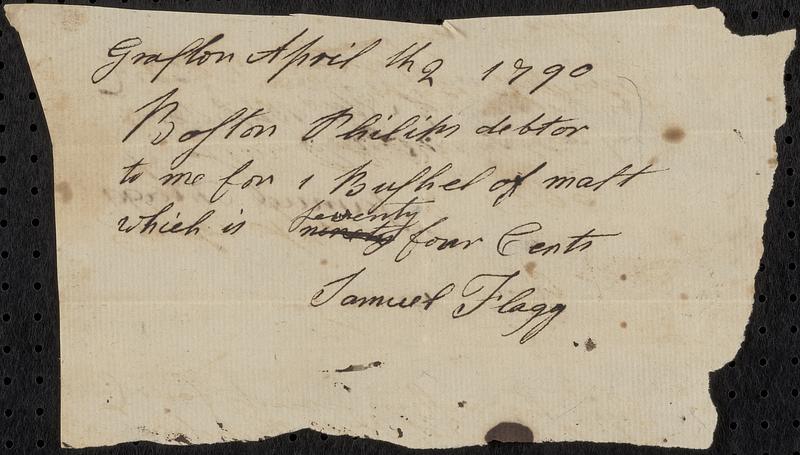 Grafton April th 2 1790
Boston Philips debtor
to me for 1 Bushel of malt
which is seventy ninety four Cents
Samuel Flagg